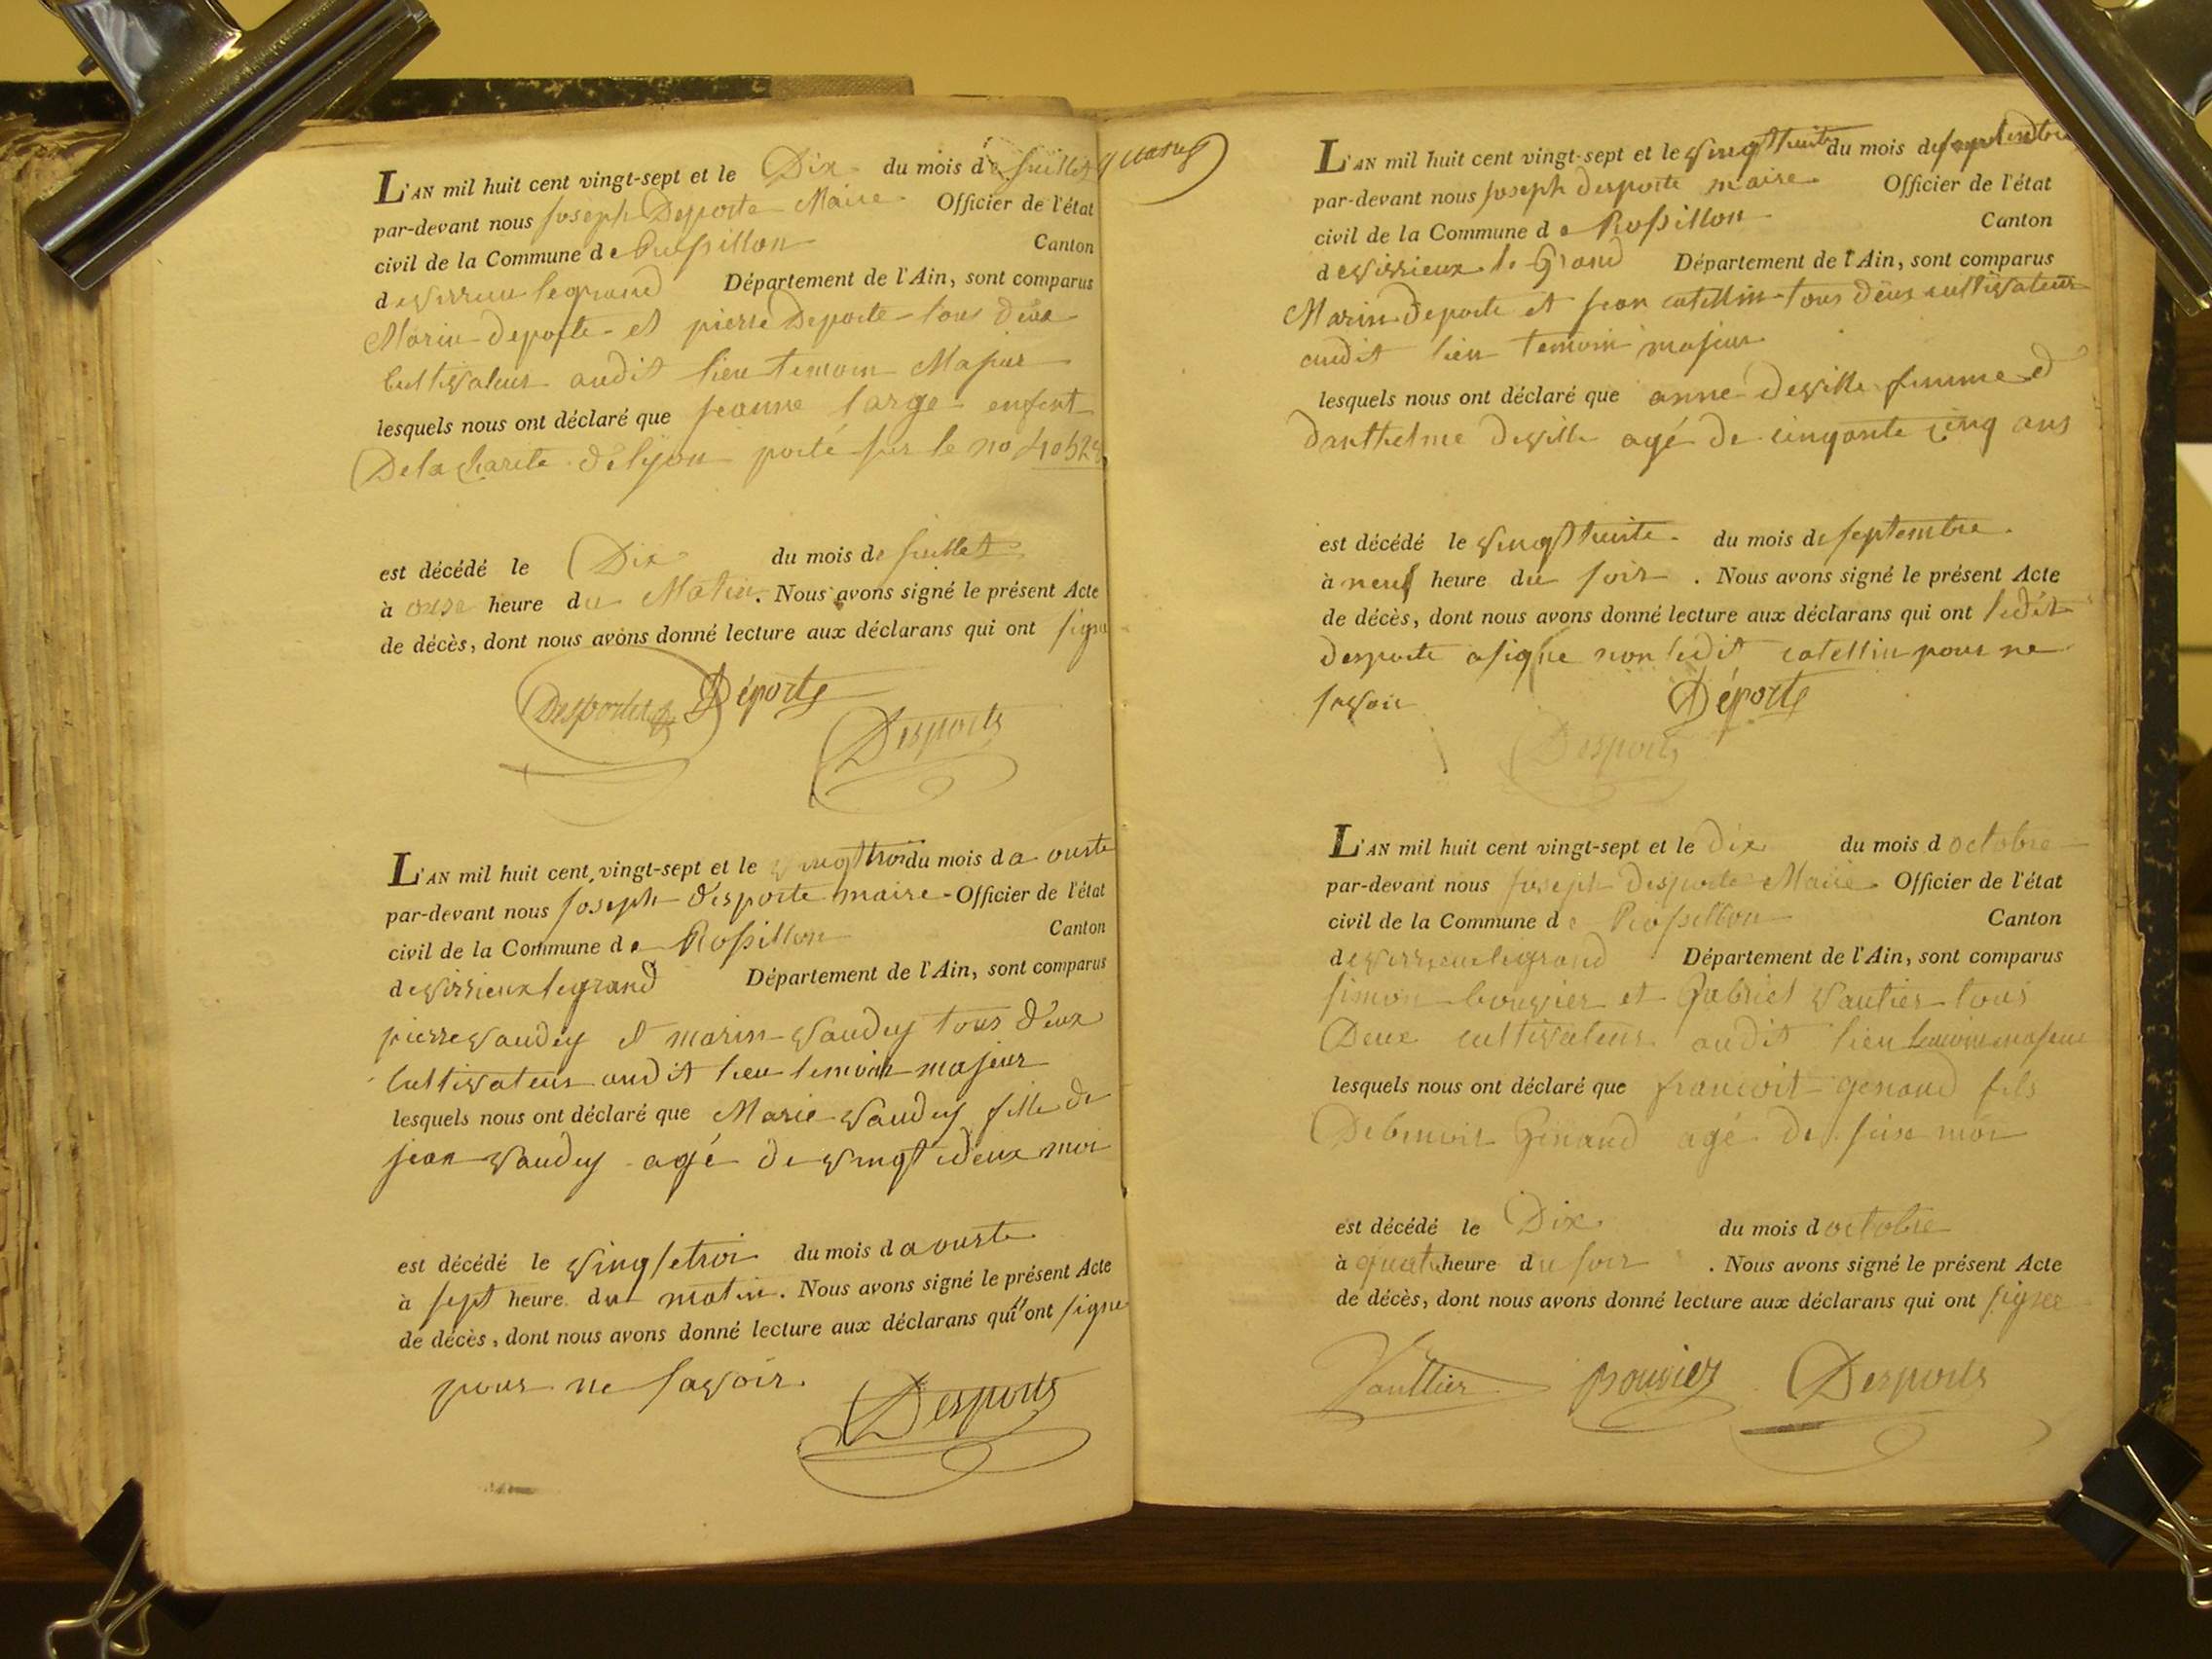 L'AN mil huit cent vingt-sept et le Dix du mois de juillet
par-devant nous joseph Deporte Maire Officier de l'état
civil de la Commune de Rossillon Canton
de virieu legrand Département de l'Ain, sont comparus
Marin deporte et pierre Deporte tous deux
Cultivateur audit lieu temoin Majeur
lesquels nous ont déclaré que jeanne large enfent
De la charite de lyon porté sur le no
est décédé le Dix du mois de juillet
à onse heure du Matin. Nous avons signé le présent Acte
de décès, dont nous avons donné lecture aux déclarans qui ont signé
Desportes Déporte
Desporte
L'AN mil huit cent vingt-sept et le vingt troi du mois d aouste
par-devant nous joseph desporte maire Officier de l'état
civil de la Commune de Rossillon Canton
de virrieux legrand Département de l'Ain, sont comparus
pierre vaudey et marin vaudey tous deux
Cultivateur audit lieu temoin majeur
lesquels nous ont déclaré que Marie vaudey fille de
jean vaudey agé de vingt deux moi
est décédé le vingt etroi du mois d aouste
à sept heure du matin. Nous avons signé le présent Acte
de décès, dont nous avons donné lecture aux déclarans qui ont signé
pour ne savoir.
Desporte
L'AN mil huit cent vingt-sept et le vingt huite du mois de septembre
par-devant nous joseph desporte maire Officier de l'état
civil de la Commune de Rossillon Canton
de virrieux le Grand Département de l'Ain, sont comparus
Marin Deporte et jean catellin tous deux cultivateur
audit lieu temoin majeur
lesquels nous ont déclaré que anne deville femme d
danthelme deville agé de cinqante cinq ans
est décédé le vingt huite du mois de septembre.
à neuf heure du soir. Nous avons signé le présent Acte
de décès, dont nous avons donné lecture aux déclarans qui ont ledit
desporte a signe non ledit catellin pour ne
savoir Déporte
Desporte
L'AN mil huit cent vingt-sept et le dix du mois d octobre
par-devant nous joseph desporte Maire Officier de l'état
civil de la Commune de Rossillon Canton
de virrieux legrand Département de l'Ain, sont comparus
simon bouvier et Gabriel vautier tous
Deux cultivateur audit lieu temoin majeur
lesquels nous ont déclaré que francoit genaud fils
De benoit Genaud agé de seize moi
est décédé le Dix du mois d octobre
à quatre heure du soir. Nous avons signé le présent Acte
de décès, dont nous avons donné lecture aux déclarans qui ont signer
Vauttier Bouvier Desporte